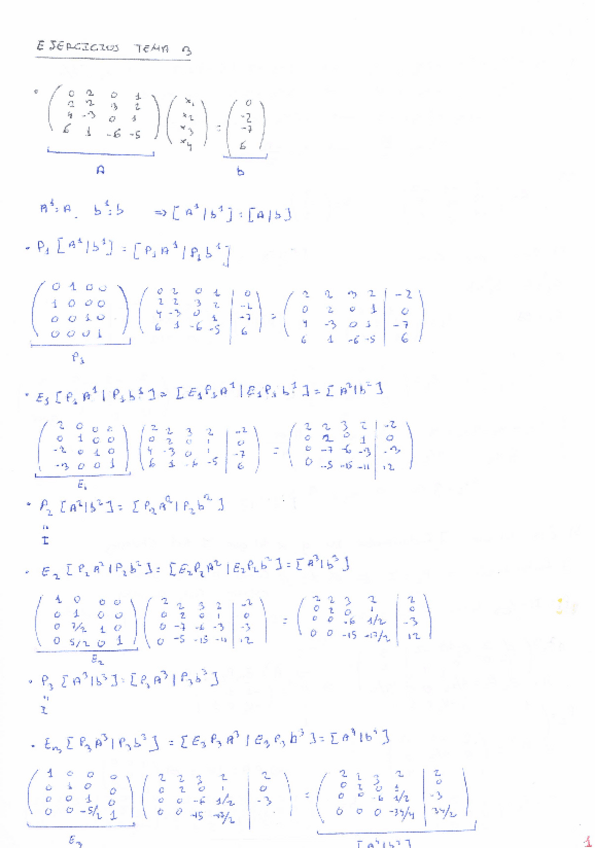 EJERCICIOS TEMA 3
(0 2 0 1; 2 2 3 2; 4 -3 0 1; 6 1 -6 -5) (x1; x2; x3; x4) = (0; -2; -7; 6)
A b
A¹=A, b¹=b ⇒ [A¹|b¹]=[A|b]
- P1 [A¹|b¹] = [P1A¹|P1b¹]
(0 1 0 0; 1 0 0 0; 0 0 1 0; 0 0 0 1) (0 2 0 1 | 0; 2 2 3 2 | -2; 4 -3 0 1 | -7; 6 1 -6 -5 | 6) = (2 2 3 2 | -2; 0 2 0 1 | 0; 4 -3 0 1 | -7; 6 1 -6 -5 | 6)
P1
· E1 [P1A¹|P1b¹] = [E1P1A¹|E1P1b¹] = [A²|b²]
(2 0 0 0; 0 1 0 0; -2 0 1 0; -3 0 0 1) (2 2 3 2 | -2; 0 2 0 1 | 0; 4 -3 0 1 | -7; 6 1 -6 -5 | 6) = (2 2 3 2 | -2; 0 2 0 1 | 0; 0 -7 -6 -3 | -3; 0 -5 -15 -11 | 12)
E1
· P2 [A²|b²] = [P2A²|P2b²]
"
I
- E2 [P2A²|P2b²] = [E2P2A²|E2P2b²] = [A³|b³]
(1 0 0 0; 0 1 0 0; 0 7/2 1 0; 0 5/2 0 1) (2 2 3 2 | -2; 0 2 0 1 | 0; 0 -7 -6 -3 | -3; 0 -5 -15 -11 | 12) = (2 2 3 2 | 2; 0 2 0 1 | 0; 0 0 -6 1/2 | -3; 0 0 -15 -17/2 | 12)
E2
· P3 [A³|b³] = [P3A³|P3b³]
"
I
· E3 [P3A³|P3b³] = [E3P3A³|E3P3b³] = [A³|b³]
(1 0 0 0; 0 1 0 0; 0 0 1 0; 0 0 -5/2 1) (2 2 3 2 | 2; 0 2 0 1 | 0; 0 0 -6 1/2 | -3; 0 0 -15 -17/2) = (2 2 3 2 | 2; 0 2 0 1 | 0; 0 0 -6 1/2 | -3; 0 0 0 -39/4 | 39/2)
E3
1